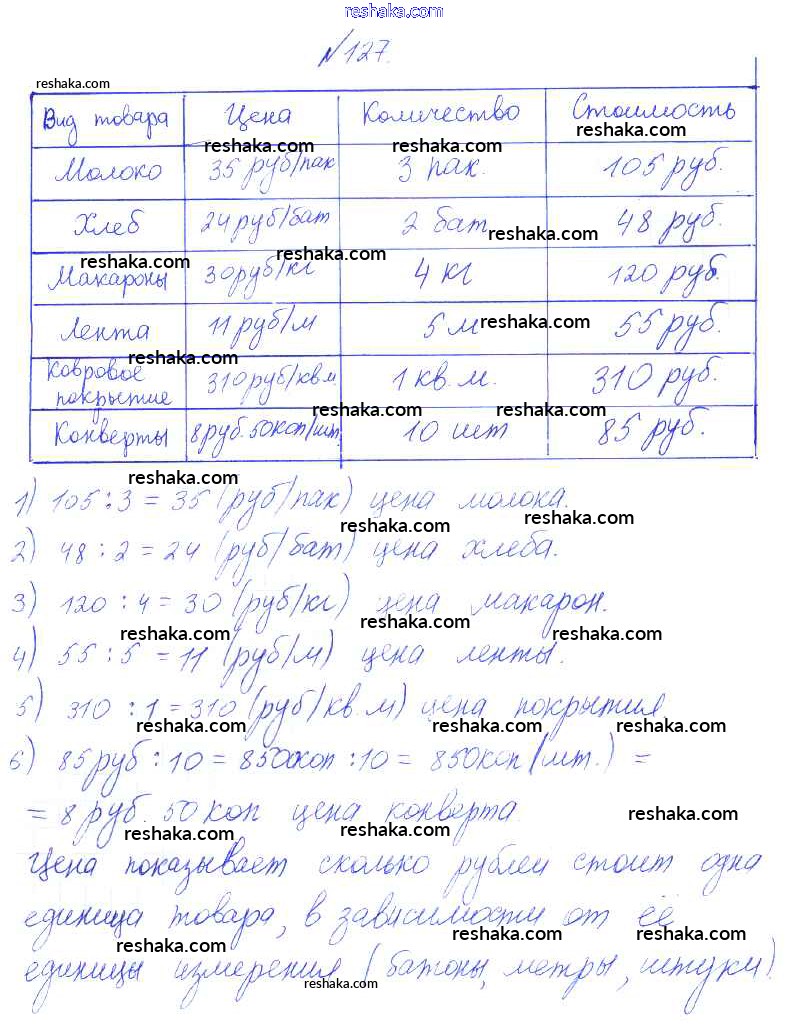 reshaka.com
№127.
reshaka.com
Вид товара Цена Количество Стоимость
reshaka.com
reshaka.com reshaka.com reshaka.com
Молоко 35 руб/пак 3 пак. 105 руб.
Хлеб 24 руб/бат 2 бат 48 руб.
reshaka.com
reshaka.com reshaka.com
Макароны 30 руб/кг 4 кг 120 руб.
Лента 11 руб/м 5 м 55 руб.
reshaka.com
reshaka.com
Ковровое покрытие 310 руб/кв м 1 кв. м. 310 руб.
reshaka.com reshaka.com
Конверты 8 руб. 50 коп/шт. 10 шт 85 руб.
reshaka.com
1) 105 : 3 = 35 (руб/пак) цена молока.
reshaka.com reshaka.com
2) 48 : 2 = 24 (руб/бат) цена хлеба.
3) 120 : 4 = 30 (руб/кг) цена макарон.
reshaka.com reshaka.com reshaka.com
4) 55 : 5 = 11 (руб/м) цена ленты.
5) 310 : 1 = 310 (руб/кв. м) цена покрытия
reshaka.com reshaka.com reshaka.com
6) 85 руб : 10 = 8500 коп : 10 = 850 коп (шт.) =
= 8 руб. 50 коп цена конверта.
reshaka.com
reshaka.com reshaka.com
Цена показывает сколько рублей стоит одна
единица товара, в зависимости от её
reshaka.com reshaka.com
единицы измерения (батоны, метры, штуки).
reshaka.com